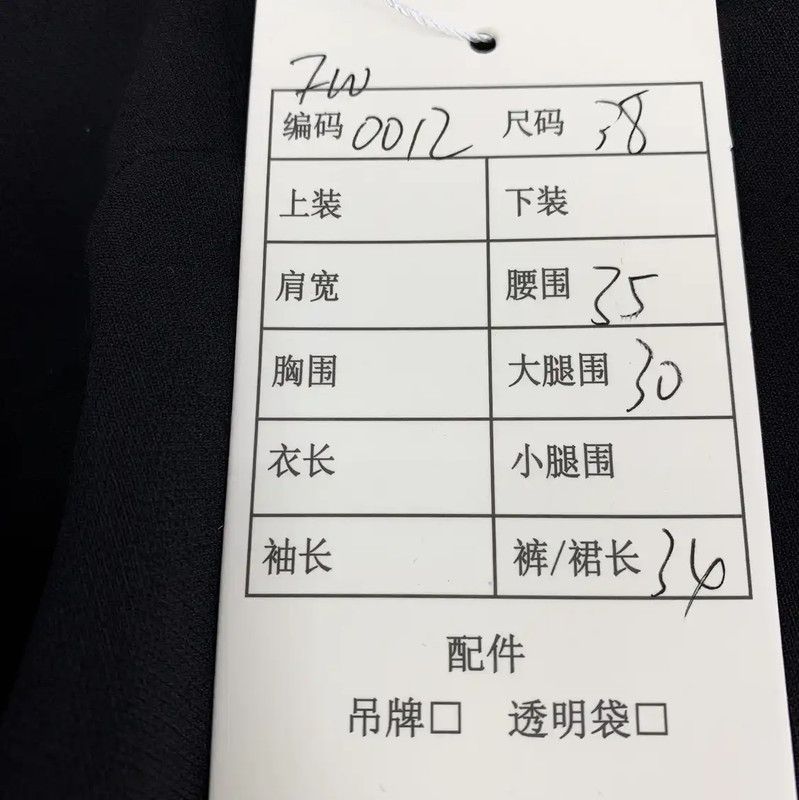 FW
编码 0012 尺码 38
上装 下装
肩宽 腰围 35
胸围 大腿围 30
衣长 小腿围
袖长 裤/裙长 34
配件
吊牌□ 透明袋□